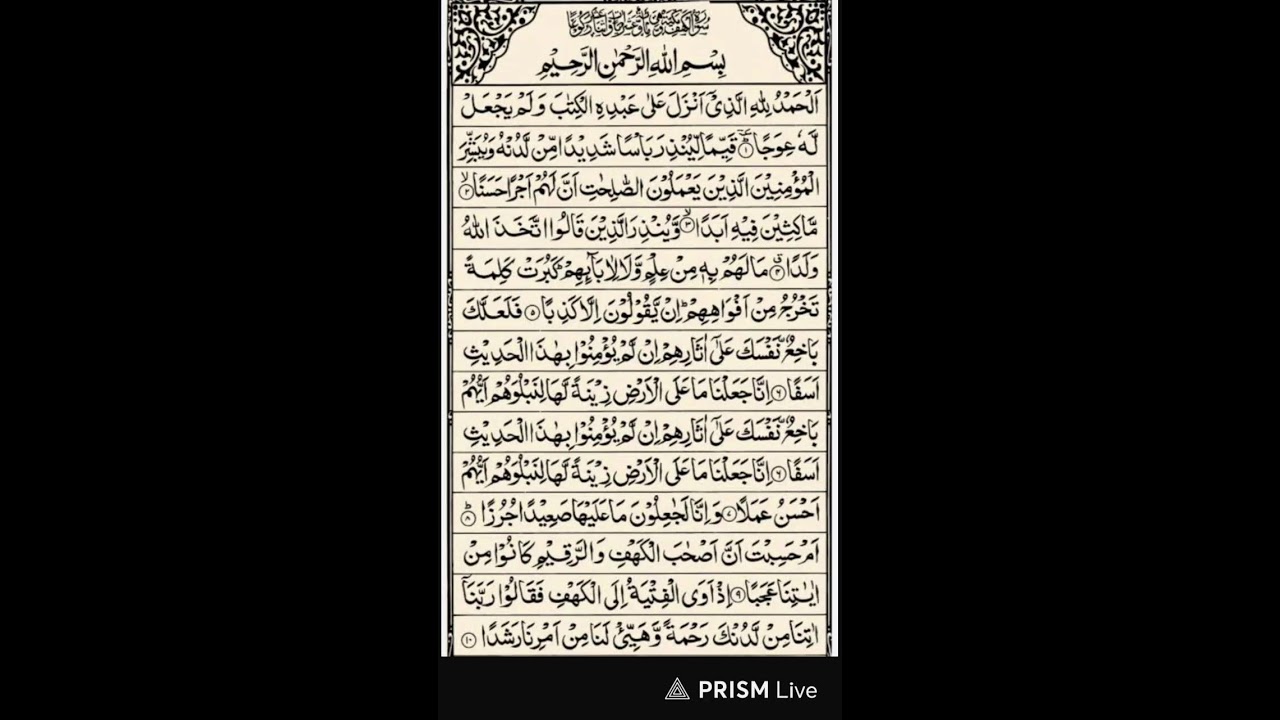 بِسْمِ اللهِ الرَّحْمٰنِ الرَّحِيْمِ
اَلْحَمْدُ لِلّٰهِ الَّذِيْۤ اَنْزَلَ عَلٰى عَبْدِهِ الْكِتٰبَ وَلَمْ يَجْعَلْ
لَّهٗ عِوَجًا ؕ۱ قَيِّمًا لِّيُنْذِرَ بَاْسًا شَدِيْدًا مِّنْ لَّدُنْهُ وَيُبَشِّرَ
الْمُؤْمِنِيْنَ الَّذِيْنَ يَعْمَلُوْنَ الصّٰلِحٰتِ اَنَّ لَهُمْ اَجْرًا حَسَنًا ۙ۲
مَّاكِثِيْنَ فِيْهِ اَبَدًا ۙ۳ وَّيُنْذِرَ الَّذِيْنَ قَالُوا اتَّخَذَ اللهُ
وَلَدًا ۗ۴ مَا لَهُمْ بِهٖ مِنْ عِلْمٍ وَّلَا لِاٰبَآىِٕهِمْ ؕ كَبُرَتْ كَلِمَةً
تَخْرُجُ مِنْ اَفْوَاهِهِمْ ؕ اِنْ يَّقُوْلُوْنَ اِلَّا كَذِبًا ۵ فَلَعَلَّكَ
بَاخِعٌ نَّفْسَكَ عَلٰۤى اٰثَارِهِمْ اِنْ لَّمْ يُؤْمِنُوْا بِهٰذَا الْحَدِيْثِ
اَسَفًا ۶ اِنَّا جَعَلْنَا مَا عَلَى الْاَرْضِ زِيْنَةً لَّهَا لِنَبْلُوَهُمْ اَيُّهُمْ
بَاخِعٌ نَّفْسَكَ عَلٰۤى اٰثَارِهِمْ اِنْ لَّمْ يُؤْمِنُوْا بِهٰذَا الْحَدِيْثِ
اَسَفًا ۶ اِنَّا جَعَلْنَا مَا عَلَى الْاَرْضِ زِيْنَةً لَّهَا لِنَبْلُوَهُمْ اَيُّهُمْ
اَحْسَنُ عَمَلًا ۷ وَاِنَّا لَجٰعِلُوْنَ مَا عَلَيْهَا صَعِيْدًا جُرُزًا ؕ۸
اَمْ حَسِبْتَ اَنَّ اَصْحٰبَ الْكَهْفِ وَالرَّقِيْمِ كَانُوْا مِنْ
اٰيٰتِنَا عَجَبًا ۹ اِذْ اَوَى الْفِتْيَةُ اِلَى الْكَهْفِ فَقَالُوْا رَبَّنَاۤ
اٰتِنَا مِنْ لَّدُنْكَ رَحْمَةً وَّهَيِّئْ لَنَا مِنْ اَمْرِنَا رَشَدًا ۱۰
PRISM Live